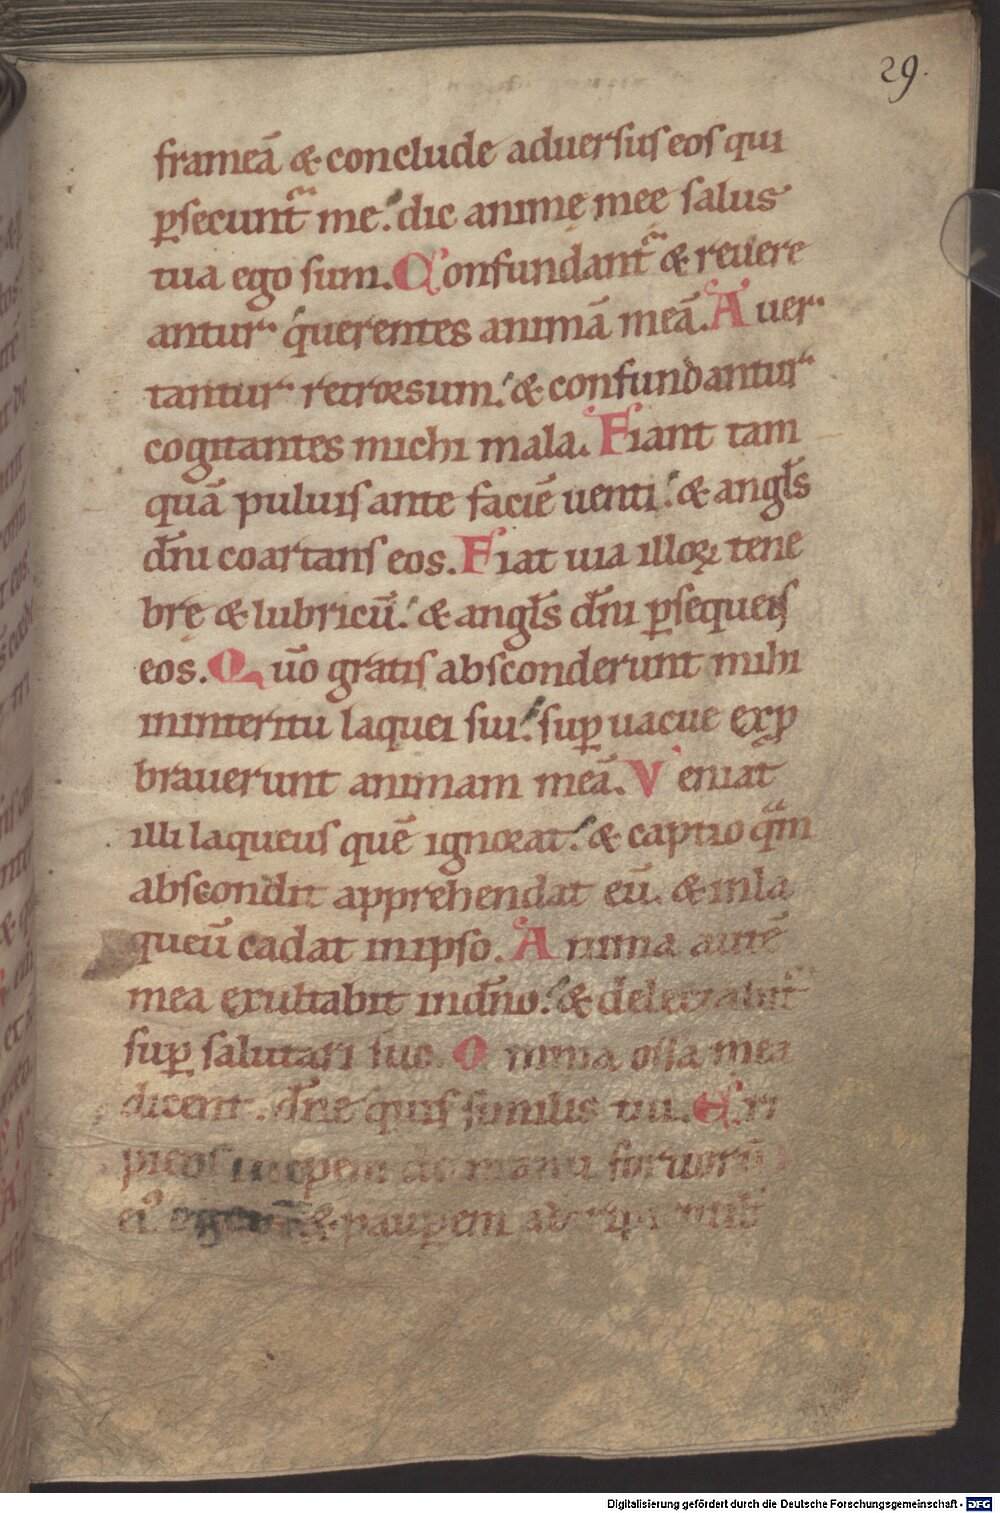 29.
frameā & conclude aduersus eos qui
ꝑsecunt̄ me. dic animę męę salus
tua ego sum. Confundant̄ & reuere
antur querentes animā meā. Auer
tantur retrorsum. & confundantur
cogitantes michi mala. Fiant tam
quā puluis ante faciē uenti. & angl̄s
dn̄i coartans eos. Fiat uia illoꝝ tene
brę & lubricū. & angl̄s dn̄i ꝑsequens
eos. Qūo gratis absconderunt mihi
ininteritu laquei sui. suꝑ uacue exꝓ
brauerunt animam meā. Veniat
illi laqueus quē ignorat. & captio quā
abscondit apprehendat eū. & inla
queū cadat inipso. Anima autē
mea exultabit indn̄o. & delectabit̄
suꝑ salutari suo. Omnia ossa mea
dicent. dn̄e quis similis tui. Eri
piens inopem de manu fortiorū
eiꝰ egenū & pauꝑem